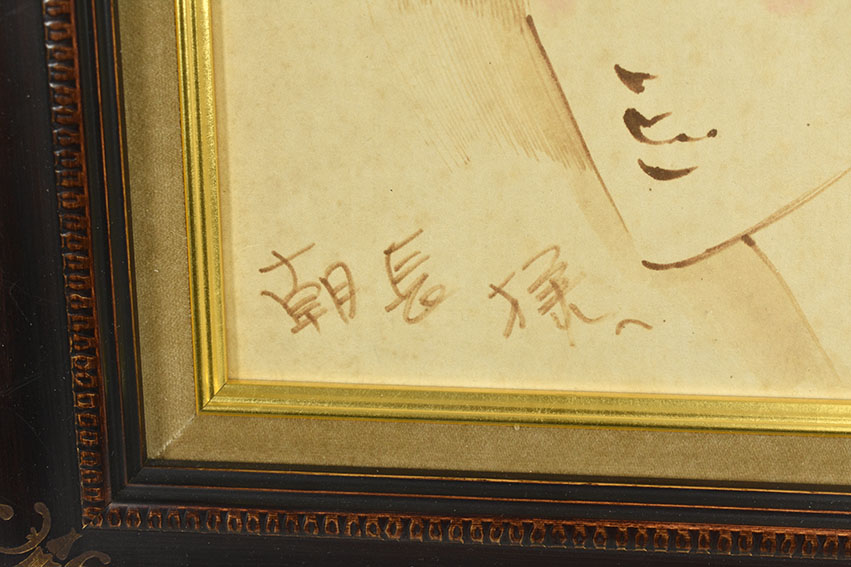 朝長様へ